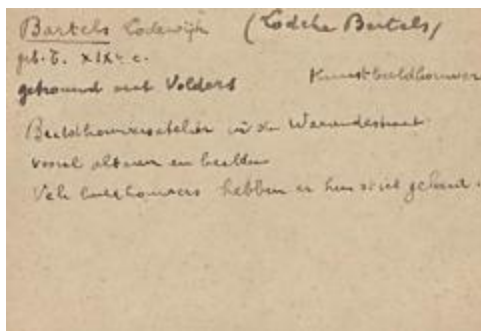 Bartels Lodewijk (Lodske Bartels)
geb. T. XIXe e.
getrouwd met Volders Kunstbeeldhouwer
Beeldhouwersatelier in de Warandestraat
vooral altaren en beelden
Vele beeldhouwers hebben er hun stiel geleerd.